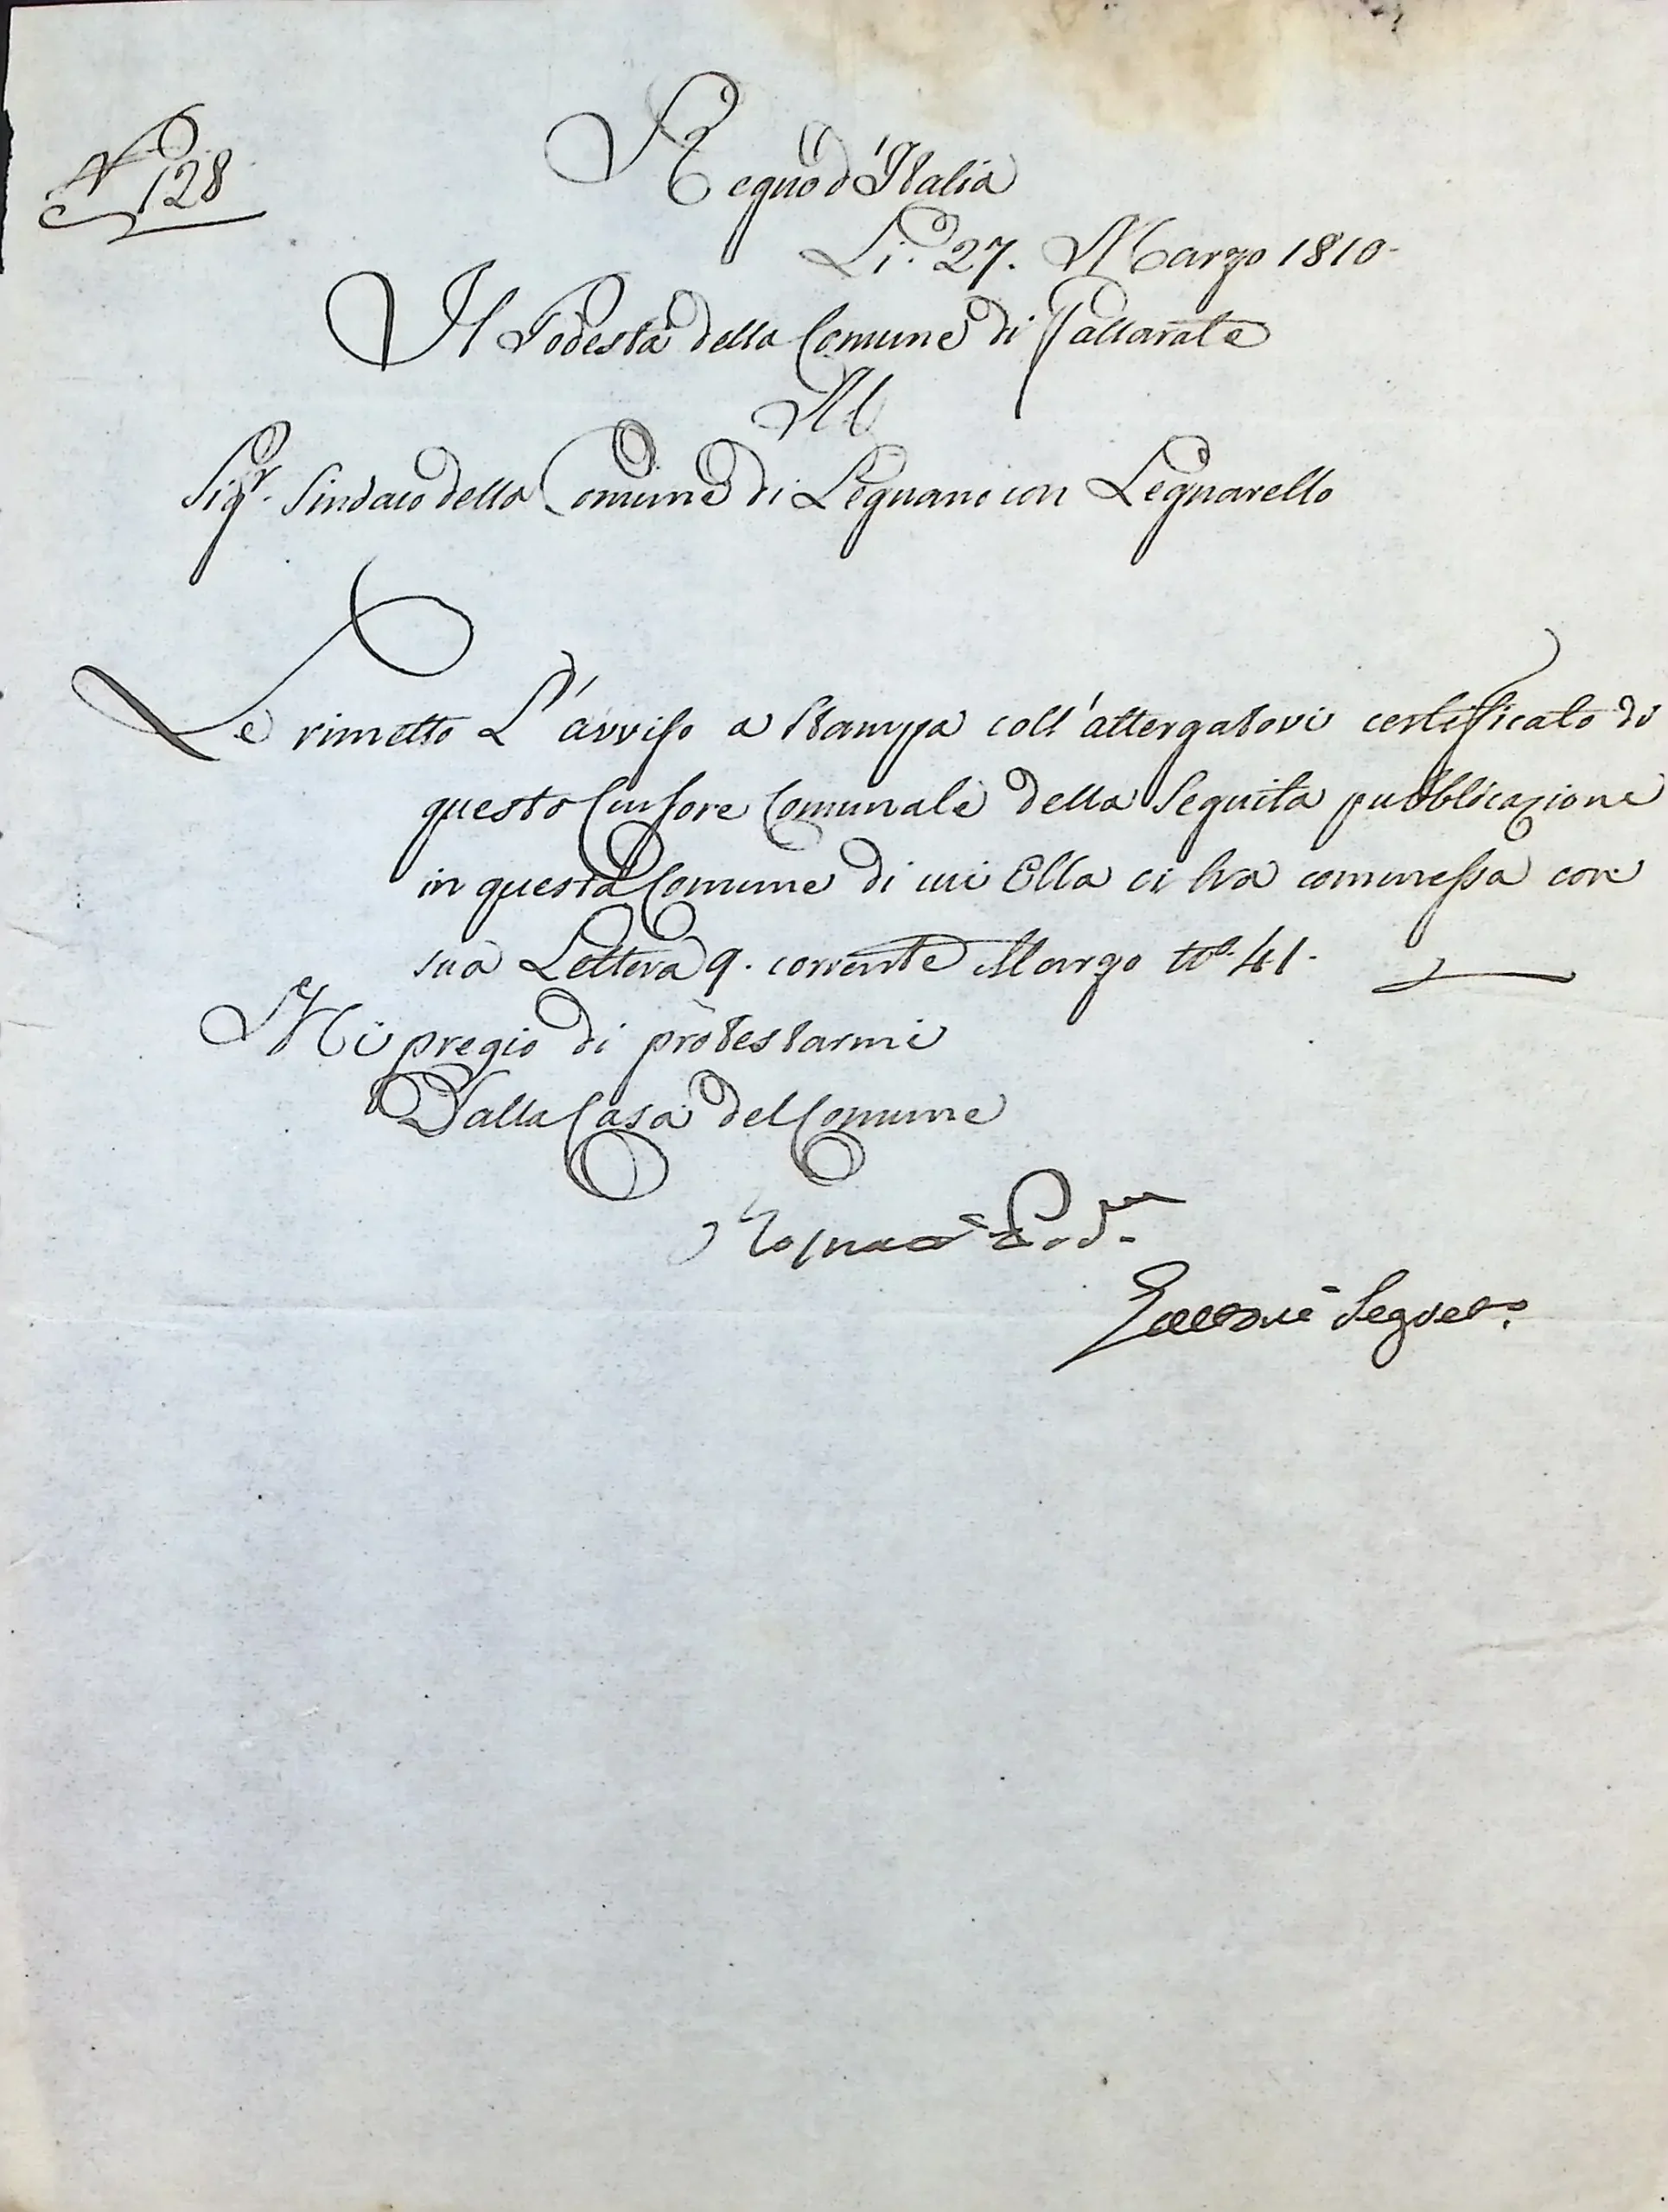 N.° 128
Regno d'Italia
Li. 27. Marzo 1810.
Il Podestà della Comune di Gallarate
Al
Sigr. Sindaco della Comune di Legnano con Legnarello
Le rimetto L'avviso a Stampa coll'attergatovi certificato di
questo Cursore Comunale della Seguita pubblicazione
in questa Comune di cui Ella ci ha commessa con
sua Lettera 9. corrente Marzo N.° 41.
Mi pregio di protestarmi
Dalla Casa del Comune
Pod.
Segret.°